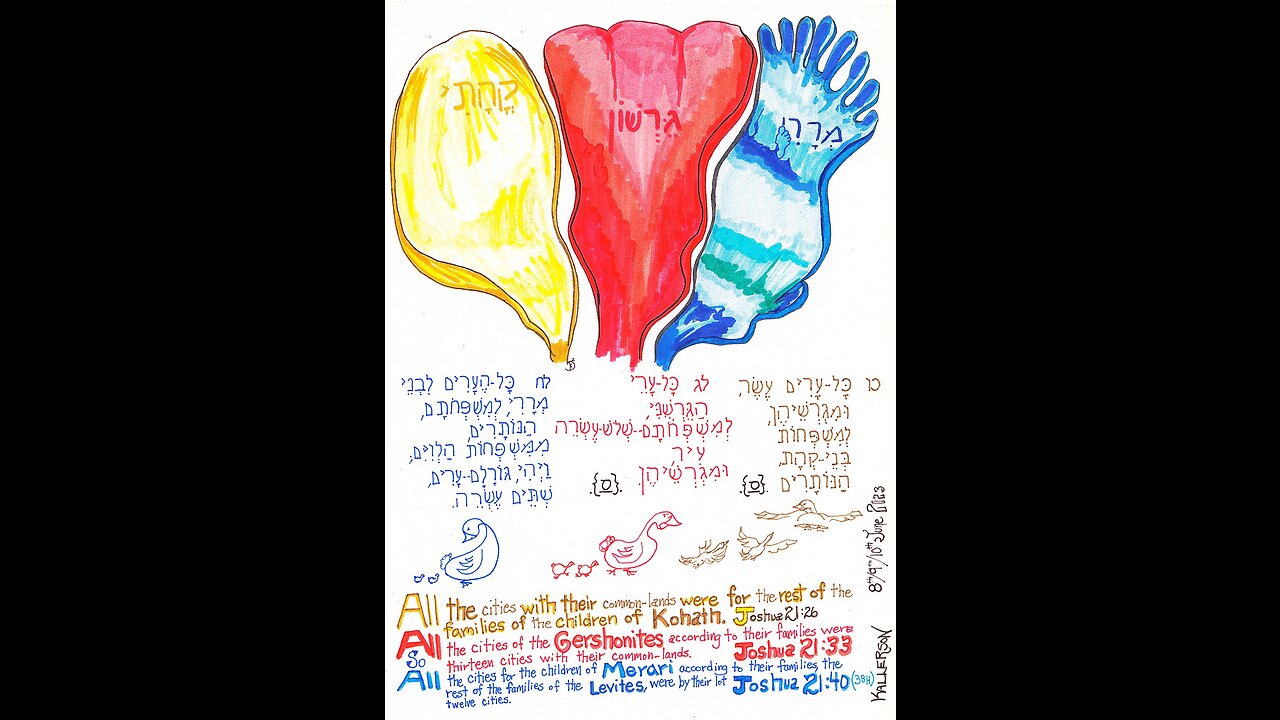 קְהָתִי
גֵּרְשׁוֹן
מְרָרִי
כו כָּל-עָרִים עֶשֶׂר,
וּמִגְרְשֵׁיהֶן,
לְמִשְׁפְּחוֹת
בְּנֵי-קְהָת,
הַנּוֹתָרִים {ס}.
לג כָּל-עָרֵי
הַגֵּרְשֻׁנִּי,
לְמִשְׁפְּחֹתָם--שְׁלֹשׁ-עֶשְׂרֵה
עִיר,
וּמִגְרְשֵׁיהֶן. {ס}.
לח כָּל-הֶעָרִים לִבְנֵי
מְרָרִי, לְמִשְׁפְּחֹתָם,
הַנּוֹתָרִים,
מִמִּשְׁפְּחוֹת הַלְוִיִּם,
וַיְהִי, גּוֹרָלָם--עָרִים,
שְׁתֵּים עֶשְׂרֵה.
All the cities with their common-lands were for the rest of the
families of the children of Kohath. Joshua 21:26
All the cities of the Gershonites according to their families were
thirteen cities with their common-lands. Joshua 21:33
So All the cities for the children of Merari according to their families, the
rest of the families of the Levites, were by their lot Joshua 21:40 (38H)
twelve cities.
KALLERSON 8th/9th/10th June 2023